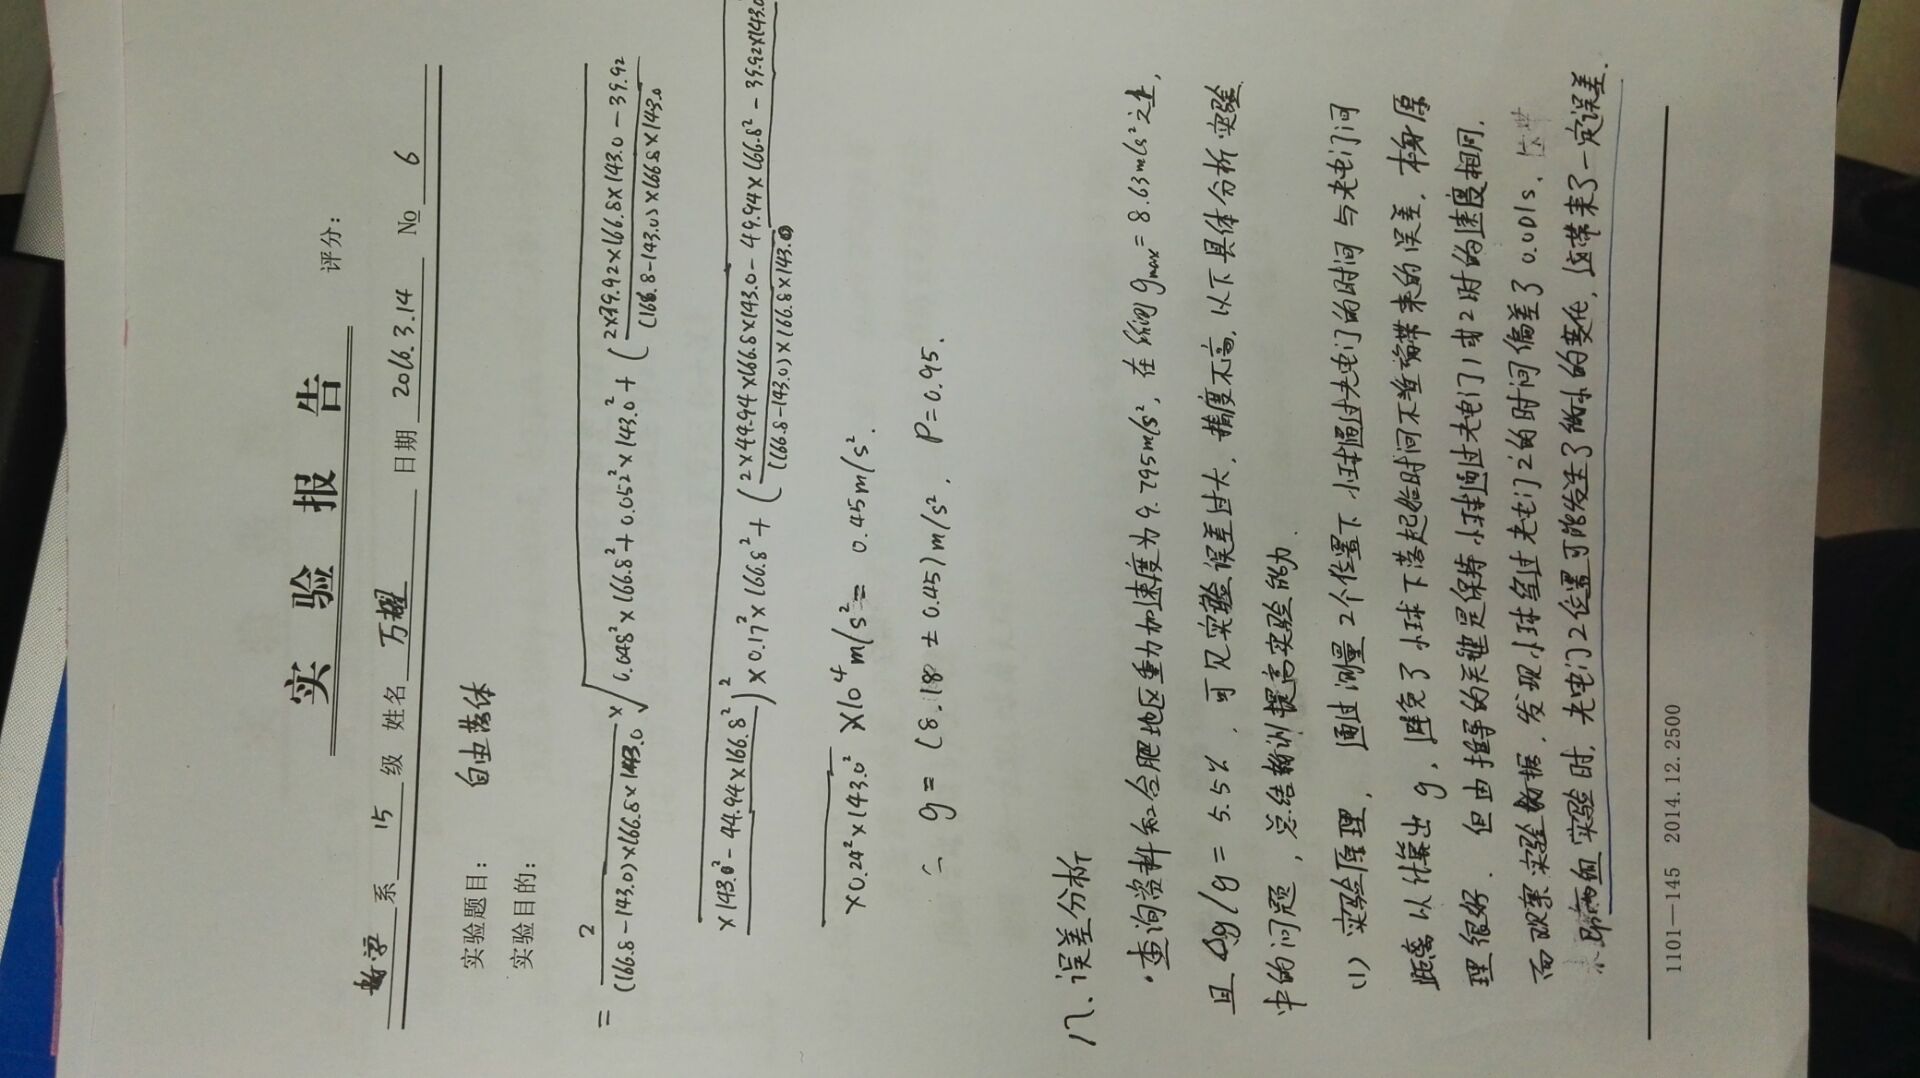 实 验 报 告
评分：
数学 系 15 级 姓名 万耀 日期 2016.3.14 No 6
实验题目： 自由落体
实验目的：
= 2/((166.8-143.0)×166.8×143.0) × √(0.048²×166.8²+0.052²×143.0²+((2×49.92×166.8×143.0-39.92
×143.0²-44.94×166.8²)/((166.8-143.0)×166.8×143.0))²×0.17²×166.8²+((2×44.94×166.8×143.0-49.94×166.8²-39.92×143.0
×0.24²×143.0² ×10⁴ m/s² = 0.45m/s².
∴ g = (8.18 ± 0.45) m/s², P=0.95.
八、误差分析
·查询资料知合肥地区重力加速度为9.795m/s², 在所测gmax = 8.63m/s²之上,
且 Δg/g = 5.5%, 可见实验误差过大, 精度不高, 以下具体分析实验
中的问题, 总结提高实验能力.
(1) 实验原理, 通过测量2个位置下小球通过光电门的时间与光电门间
距离以估算出 g, 避免了小球下落起始时间不准确带来的误差, 本身原
理很好. 但由推导的关键是保持小球通过光电门1时2时的速度相同,
而观察实验数据, 发现小球经过光电门2的时间偏差了0.001s,
即两组实验时, 光电门2位置可能发生了微小的变化, 这带来了一定误差.
1101—145 2014.12.2500